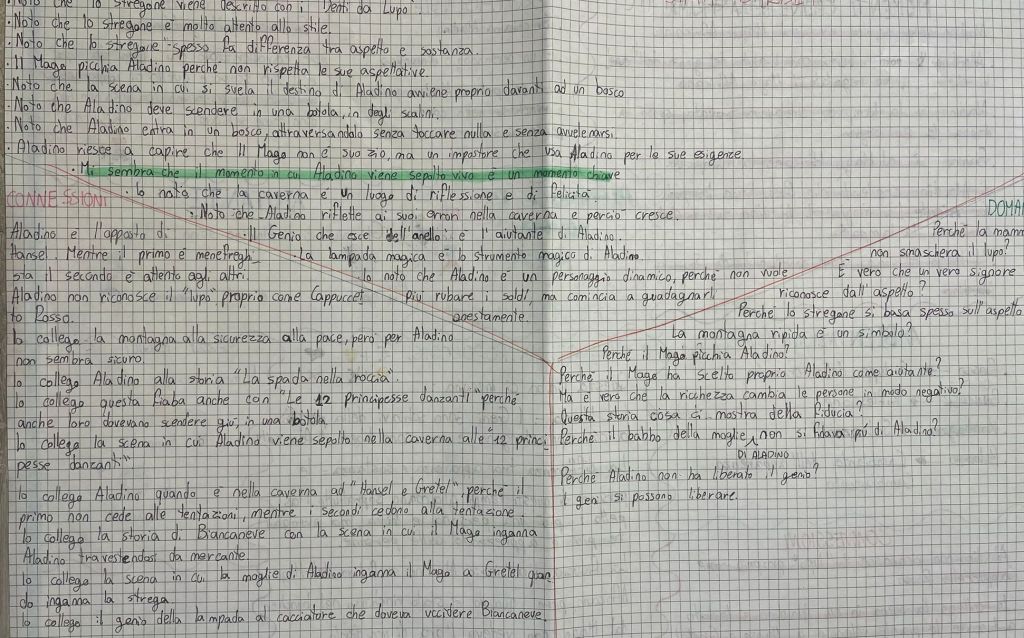 Noto che lo stregone viene descritto con i "Denti da Lupo".
• Noto che lo stregone è molto attento allo stile.
• Noto che lo stregone spesso fa differenza tra aspetto e sostanza.
• Il Mago picchia Aladino perché non rispetta le sue aspettative.
• Noto che la scena in cui si svela il destino di Aladino avviene proprio davanti ad un bosco
• Noto che Aladino deve scendere in una botola, in degli scalini.
• Noto che Aladino entra in un bosco, attraversandolo senza toccare nulla e senza avvelenarsi.
• Aladino riesce a capire che Il Mago non è suo zio, ma un impostore che usa Aladino per le sue esigenze
• Mi sembra che il momento in cui Aladino viene sepolto vivo è un momento chiave
• Io noto che la caverna è un luogo di riflessione e di felicità.
• Noto che Aladino riflette ai suoi errori nella caverna e perciò cresce.
• Il Genio che esce dell'anello è l'aiutante di Aladino.
• La lampada magica è lo strumento magico di Aladino.
• Io noto che Aladino è un personaggio dinamico, perché non vuole
più rubare i soldi, ma comincia a guadagnarli
onestamente.
CONNESSIONI
Aladino è l'opposto di
Hansel. Mentre il primo è menefregh
sta il secondo è attento agli altri.
Aladino non riconosce il "lupo" proprio come Cappuccet
to Rosso.
Io collego la montagna alla sicurezza alla pace, però per Aladino
non sembra sicuro.
Io collego Aladino alla storia "La spada nella roccia".
Io collego questa fiaba anche con "Le 12 principesse danzanti" perché
anche loro dovevano scendere giù, in una botola.
Io collego la scena in cui Aladino viene sepolto nella caverna alle "12 princi
pesse danzanti"
Io collego Aladino quando è nella caverna ad "Hansel e Gretel", perché il
primo non cede alle tentazioni, mentre i secondi cedono alla tentazione.
Io collego la storia di Biancaneve con la scena in cui il Mago inganna
Aladino travestendosi da mercante.
Io collego la scena in cui la moglie di Aladino inganna il Mago a Gretel quan
do inganna la strega.
Io collego il genio della lampada al cacciatore che doveva uccidere Biancaneve.
DOMA
Perché la mamm
non smaschera il lupo?
È vero che un vero signore
riconosce dall'aspetto?
Perché lo stregone si basa spesso sull'aspetto
La montagna ripida è un simbolo?
Perché il Mago picchia Aladino?
Perché il Mago ha scelto proprio Aladino come aiutante?
Ma è vero che la richezza cambia le persone in modo negativo?
Questa storia cosa ci mostra della fiducia?
Perché il babbo della moglie DI ALADINO non si fidava più di Aladino?
Perché Aladino non ha liberato il genio?
I geni si possono liberare.